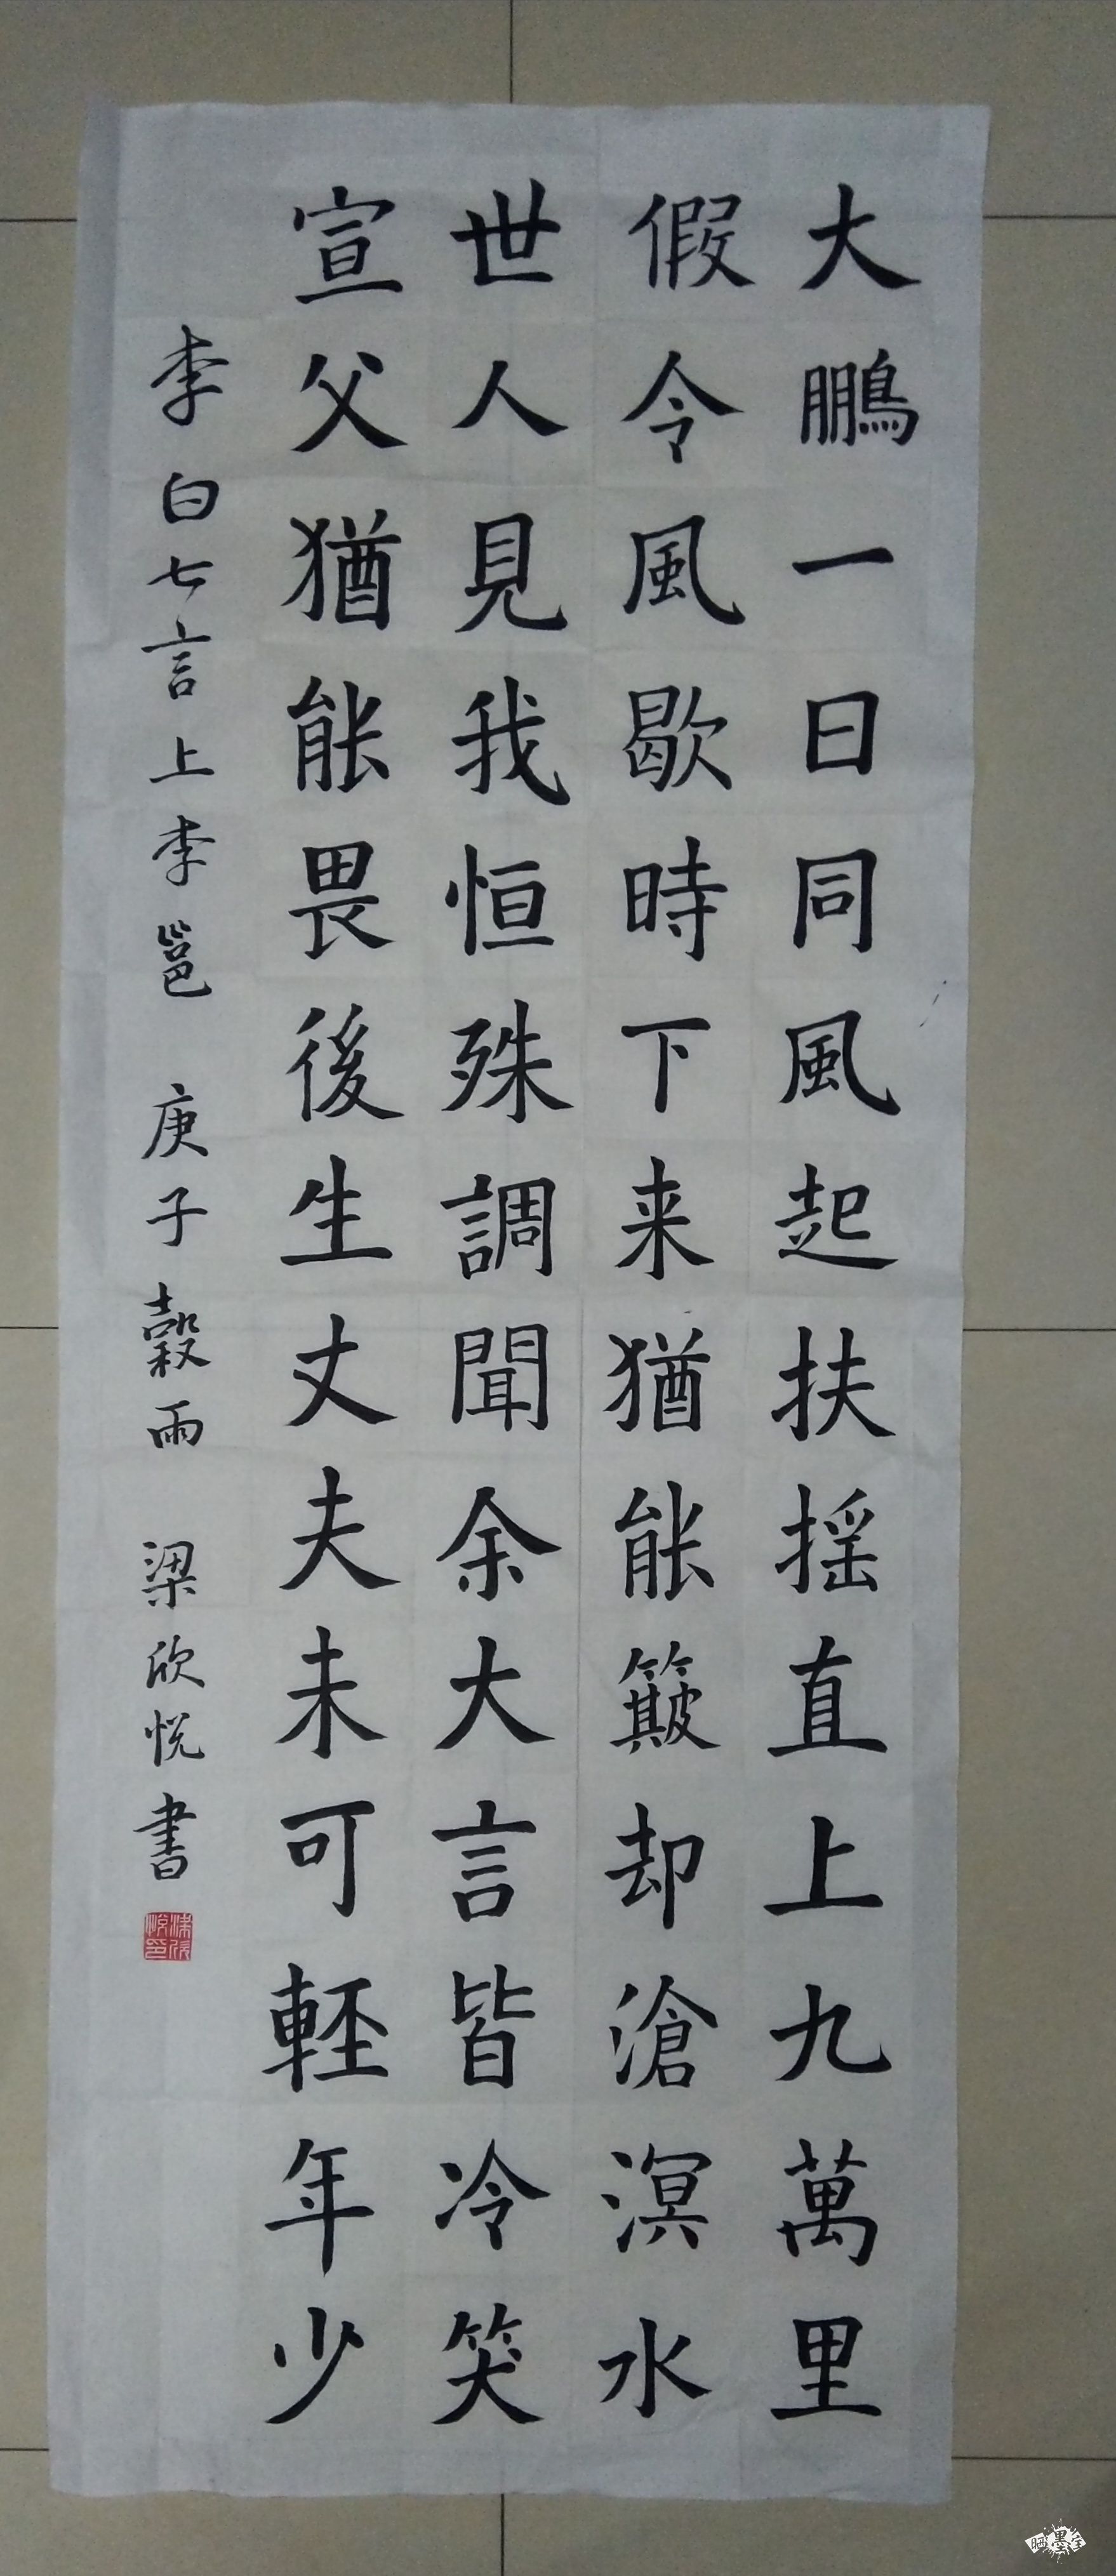 大鵬一日同風起扶摇直上九萬里
假令風歇時下来猶能簸却滄溟水
世人見我恒殊調聞余大言皆冷笑
宣父猶能畏後生丈夫未可輕年少
李白七言上李邕 庚子穀雨 梁欣悦書
梁欣悦印